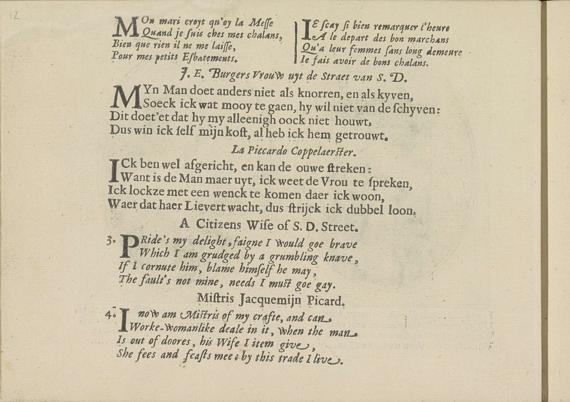 12
MOn mari croyt qu'oy la Messe
Quand je suis ches mes chalans,
Bien que rien il ne me laisse,
Pour mes petits Esbatements.
IE sçay si bien remarquer l'heure
A le depart des bon marchans
Qu'a leur femmes sans long demeure
Ie fais avoir de bons chalans.
J. E. Burgers Vrouw uyt de Straet van S. D.
MYn Man doet anders niet als knorren, en als kyven,
Soeck ick wat mooy te gaen, hy wil niet van de schyven:
Dit doet'et dat hy my alleenigh oock niet houwt,
Dus win ick self mijn kost, al heb ick hem getrouwt.
La Piccardo Coppelaerster.
ICk ben wel afgericht, en kan de ouwe streken:
Want is de Man maer uyt, ick weet de Vrou te spreken,
Ick lockze met een wenck te komen daer ick woon,
Waer dat haer Lievert wacht, dus strijck ick dubbel loon.
A Citizens Wife of S. D. Street.
3. PRide's my delight, faigne I would goe brave
Which I am grudged by a grumbling knave,
If I cornute him, blame himself he may,
The fault's not mine, needs I must goe gay.
Mistris Jacquemijn Picard.
4. I now am Mistris of my crafte, and can
Worke-womanlike deale in it, when the man
Is out of doores, his Wife I item give,
She fees and feasts mee; by this trade I live.